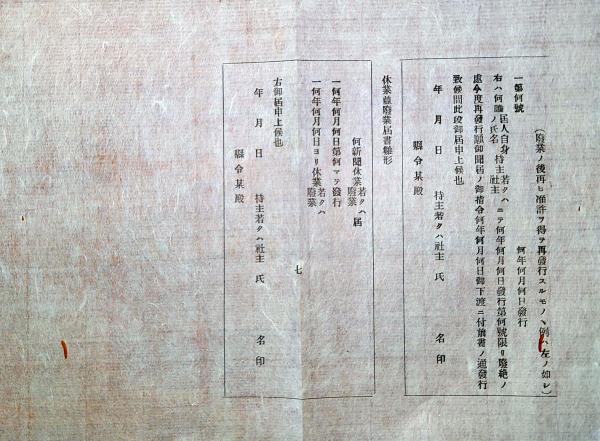 (廢業ノ後再ヒ准許ヲ得テ再發行スルモノヽ例ハ左ノ如シ)
何年何月何日發行
一第何號
右ハ何誰届人自身ノ氏名持主若クハ社主ニテ何年何月何日發行第何號限リ廢絶ノ
處今度再發行願御聞届ノ御指令何年何月何日御下渡ニ付前書ノ通發行
致候間此段御届申上候也
年月日 持主若クハ社主 氏 名印
縣令某殿
休業並廢業届書雛形
何新聞休業若クハ廢業届
一何年何月何日第何マテ發行
一何年何月何日ヨリ休業若クハ廢業
右御届申上候也
年月日 持主若クハ社主 氏 名印
縣令某殿
七